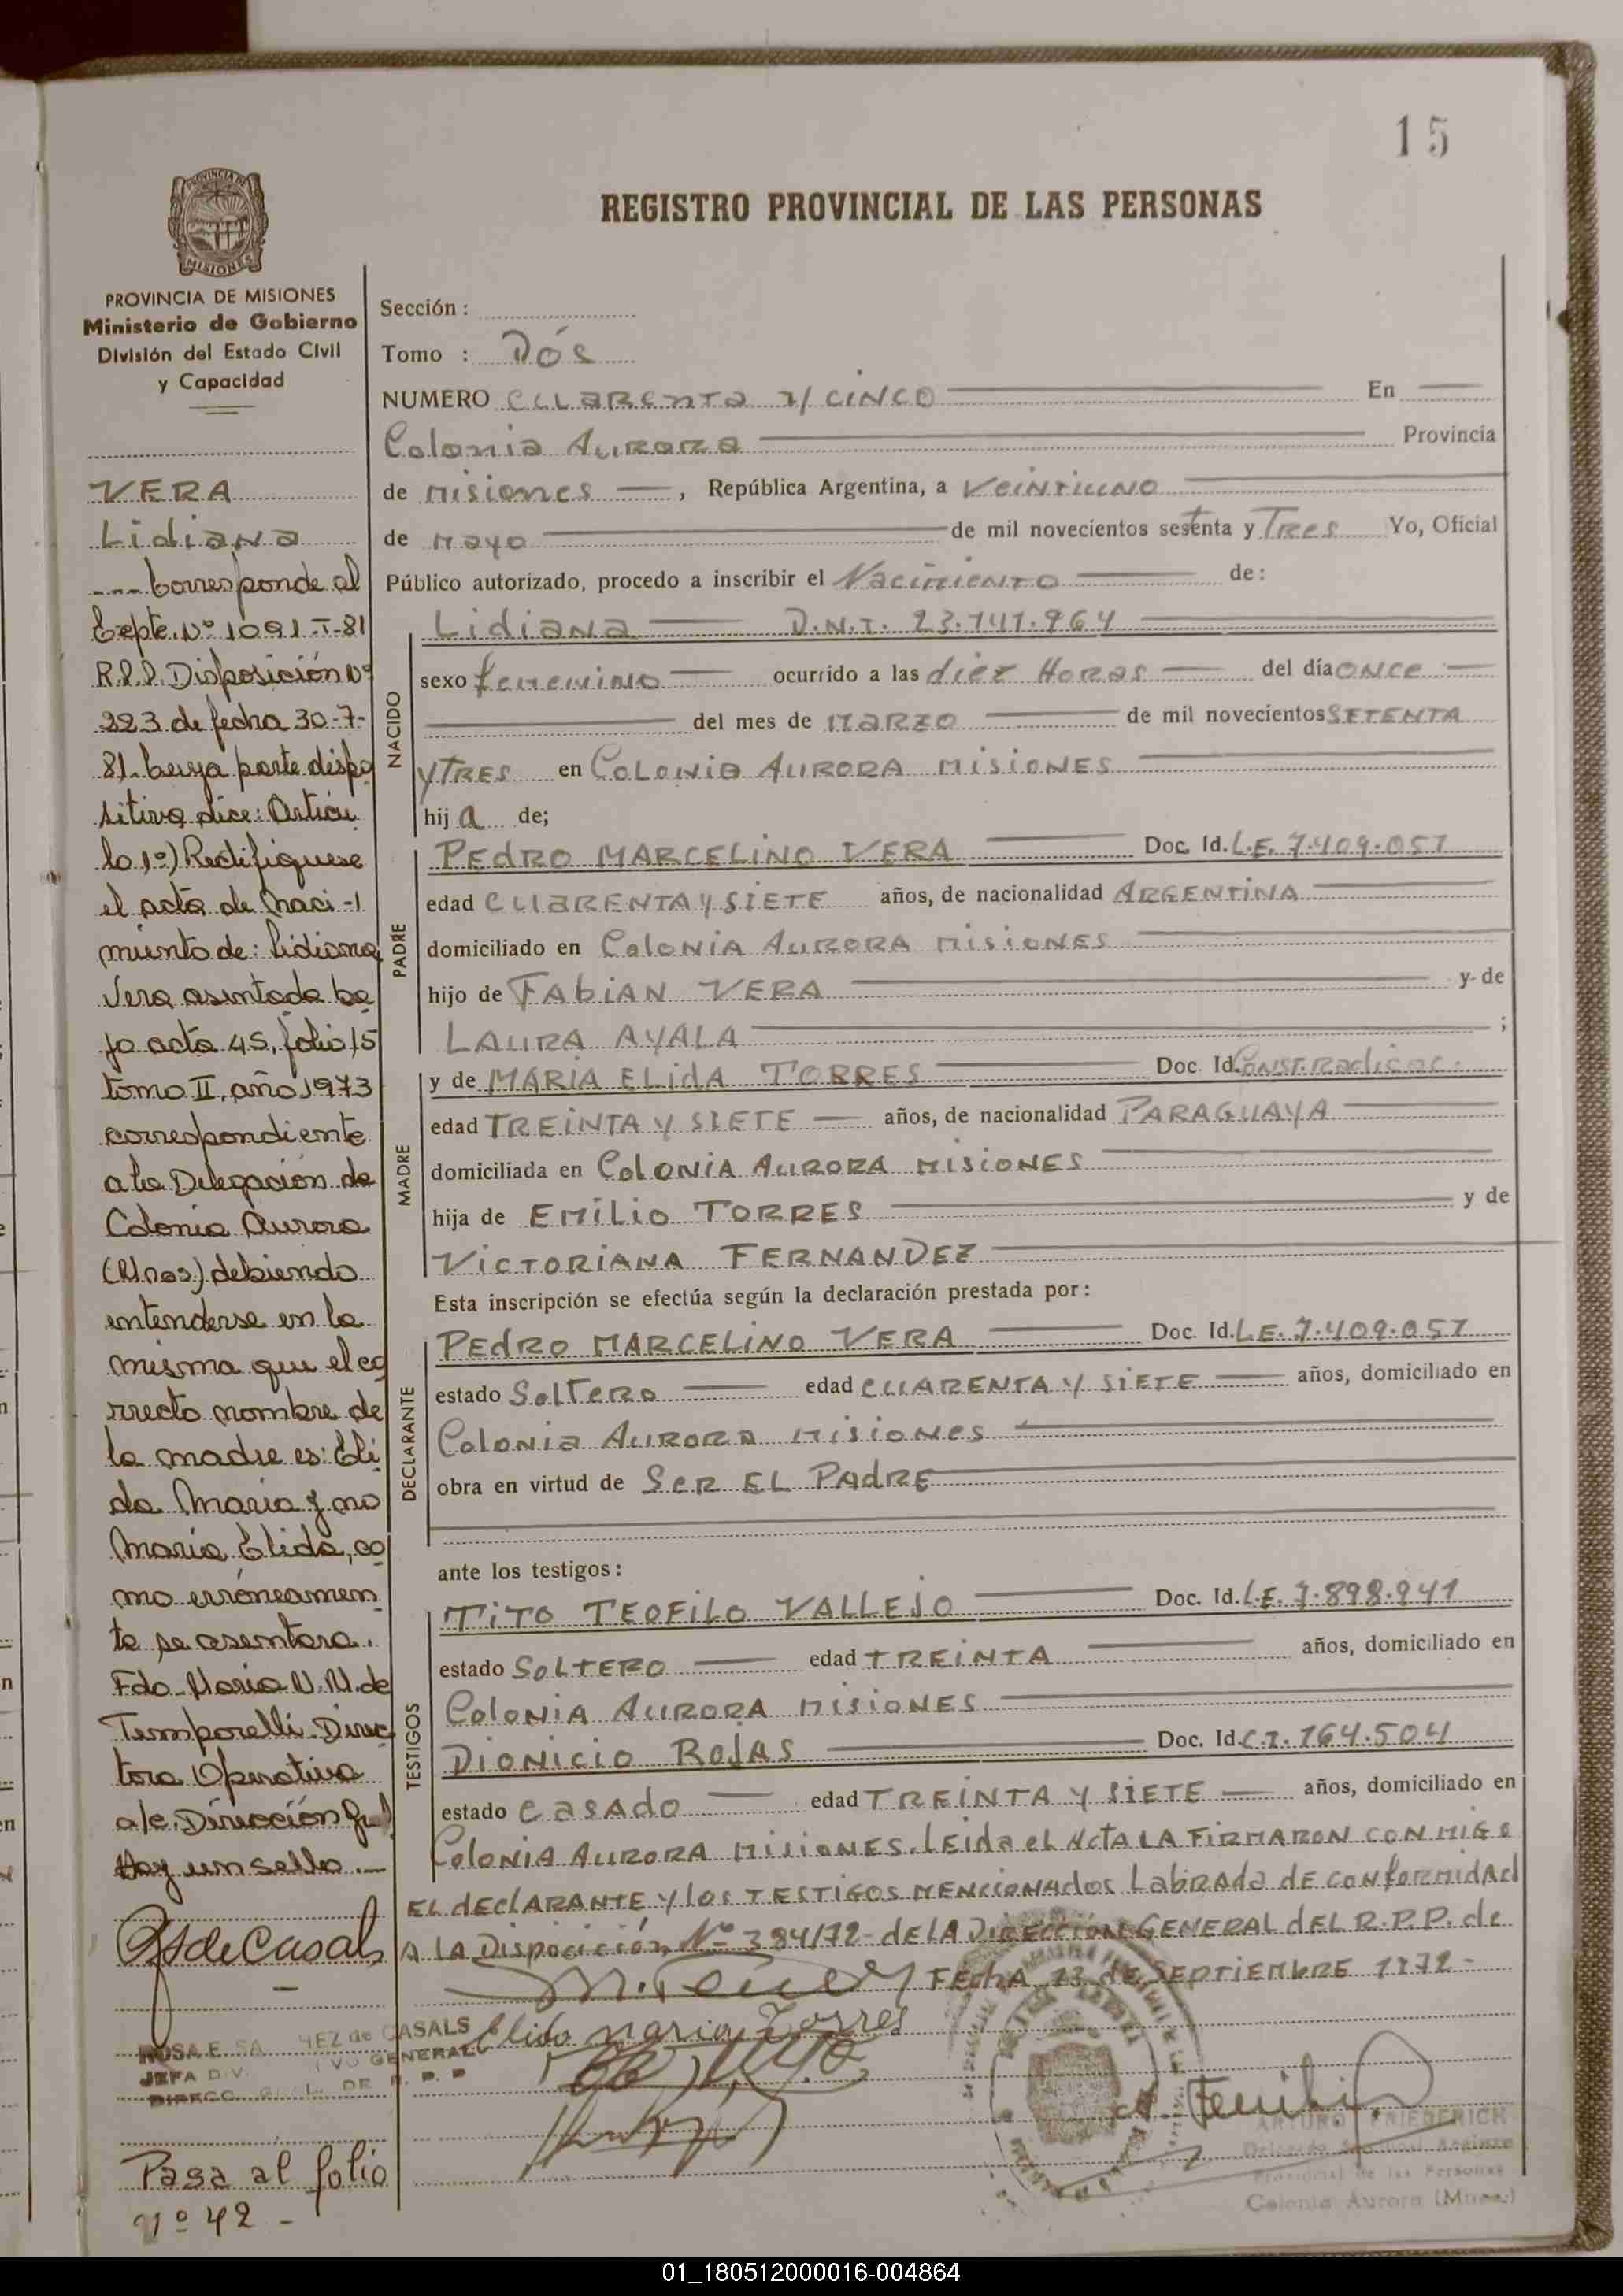 15
PROVINCIA DE
MISIONES
REGISTRO PROVINCIAL DE LAS PERSONAS
PROVINCIA DE MISIONES
Ministerio de Gobierno
División del Estado Civil
y Capacidad
VERA
Lidiana
--- Corresponde al
Expte. Nº 1091-T-81
R.P.P. Disposición Nº
223 de fecha 30-7-
81- cuya parte dispo
sitiva dice: Artícu
lo 1º) Rectifíquese
el acta de naci-
miento de: Lidiana
Vera asentada ba
jo acta 45, folio 15
tomo II, año 1973
correspondiente
a la Delegación de
Colonia Aurora
(Mnes) debiendo
entenderse en la
misma que el co
rrecto nombre de
la madre es: Eli
da María y no
María Elida, co
mo erróneamen
te se asentara.
Fdo. María N. M. de
Temporelli Direc
tora Operativa
a/c. Dirección Gral
Hay un sello.-
de Casals
ROSA E. SA NEZ de CASALS
JEFA DIV. GENERAL
DIRECC. GRAL. DE R. P. P
Pasa al folio
Nº 42 -
Sección :
Tomo : Dós
NUMERO CUARENTA Y CINCO En
Colonia AURORA Provincia
de Misiones , República Argentina, a VEINTIUNO
de Mayo de mil novecientos sesenta y Tres Yo, Oficial
Público autorizado, procedo a inscribir el Nacimiento de:
NACIDO
Lidiana D.N.I. 23.141.964
sexo femenino ocurrido a las diez Horas del día ONCE
del mes de MARZO de mil novecientos SETENTA
Y TRES en COLONIA AURORA MISIONES
hij a de;
PADRE
PEDRO MARCELINO VERA Doc. Id. L.E. 7.409.057
edad CUARENTA Y SIETE años, de nacionalidad ARGENTINA
domiciliado en COLONIA AURORA MISIONES
hijo de FABIAN VERA y de
LAURA AYALA ;
MADRE
y de MARIA ELIDA TORRES Doc. Id. Const. Radicac.
edad TREINTA Y SIETE años, de nacionalidad PARAGUAYA
domiciliada en COLONIA AURORA MISIONES
hija de EMILIO TORRES y de
VICTORIANA FERNANDEZ
Esta inscripción se efectúa según la declaración prestada por:
DECLARANTE
PEDRO MARCELINO VERA Doc. Id. L.E. 7.409.057
estado SOLTERO edad CUARENTA Y SIETE años, domiciliado en
Colonia AURORA Misiones
obra en virtud de SER EL PADRE
ante los testigos:
TESTIGOS
TITO TEOFILO VALLEJO Doc. Id. L.E. 7.898.941
estado SOLTERO edad TREINTA años, domiciliado en
COLONIA AURORA MISIONES
DIONICIO ROJAS Doc. Id. C.I. 164.504
estado CASADO edad TREINTA Y SIETE años, domiciliado en
COLONIA AURORA MISIONES. LEIDA EL ACTA LA FIRMARON CON MIGO
EL DECLARANTE Y LOS TESTIGOS MENCIONADOS LABRADA DE CONFORMIDAD
A LA DISPOCICIÓN Nº 384/72- DE LA DIRECCION GENERAL DEL R.P.P. de
FECHA 13 DE SEPTIEMBRE 1972-
Elida maria Torres
ARTURO FRIEDERICH
Provincial de las Personas
Colonia Aurora (Mnes.)
01_180512000016-004864